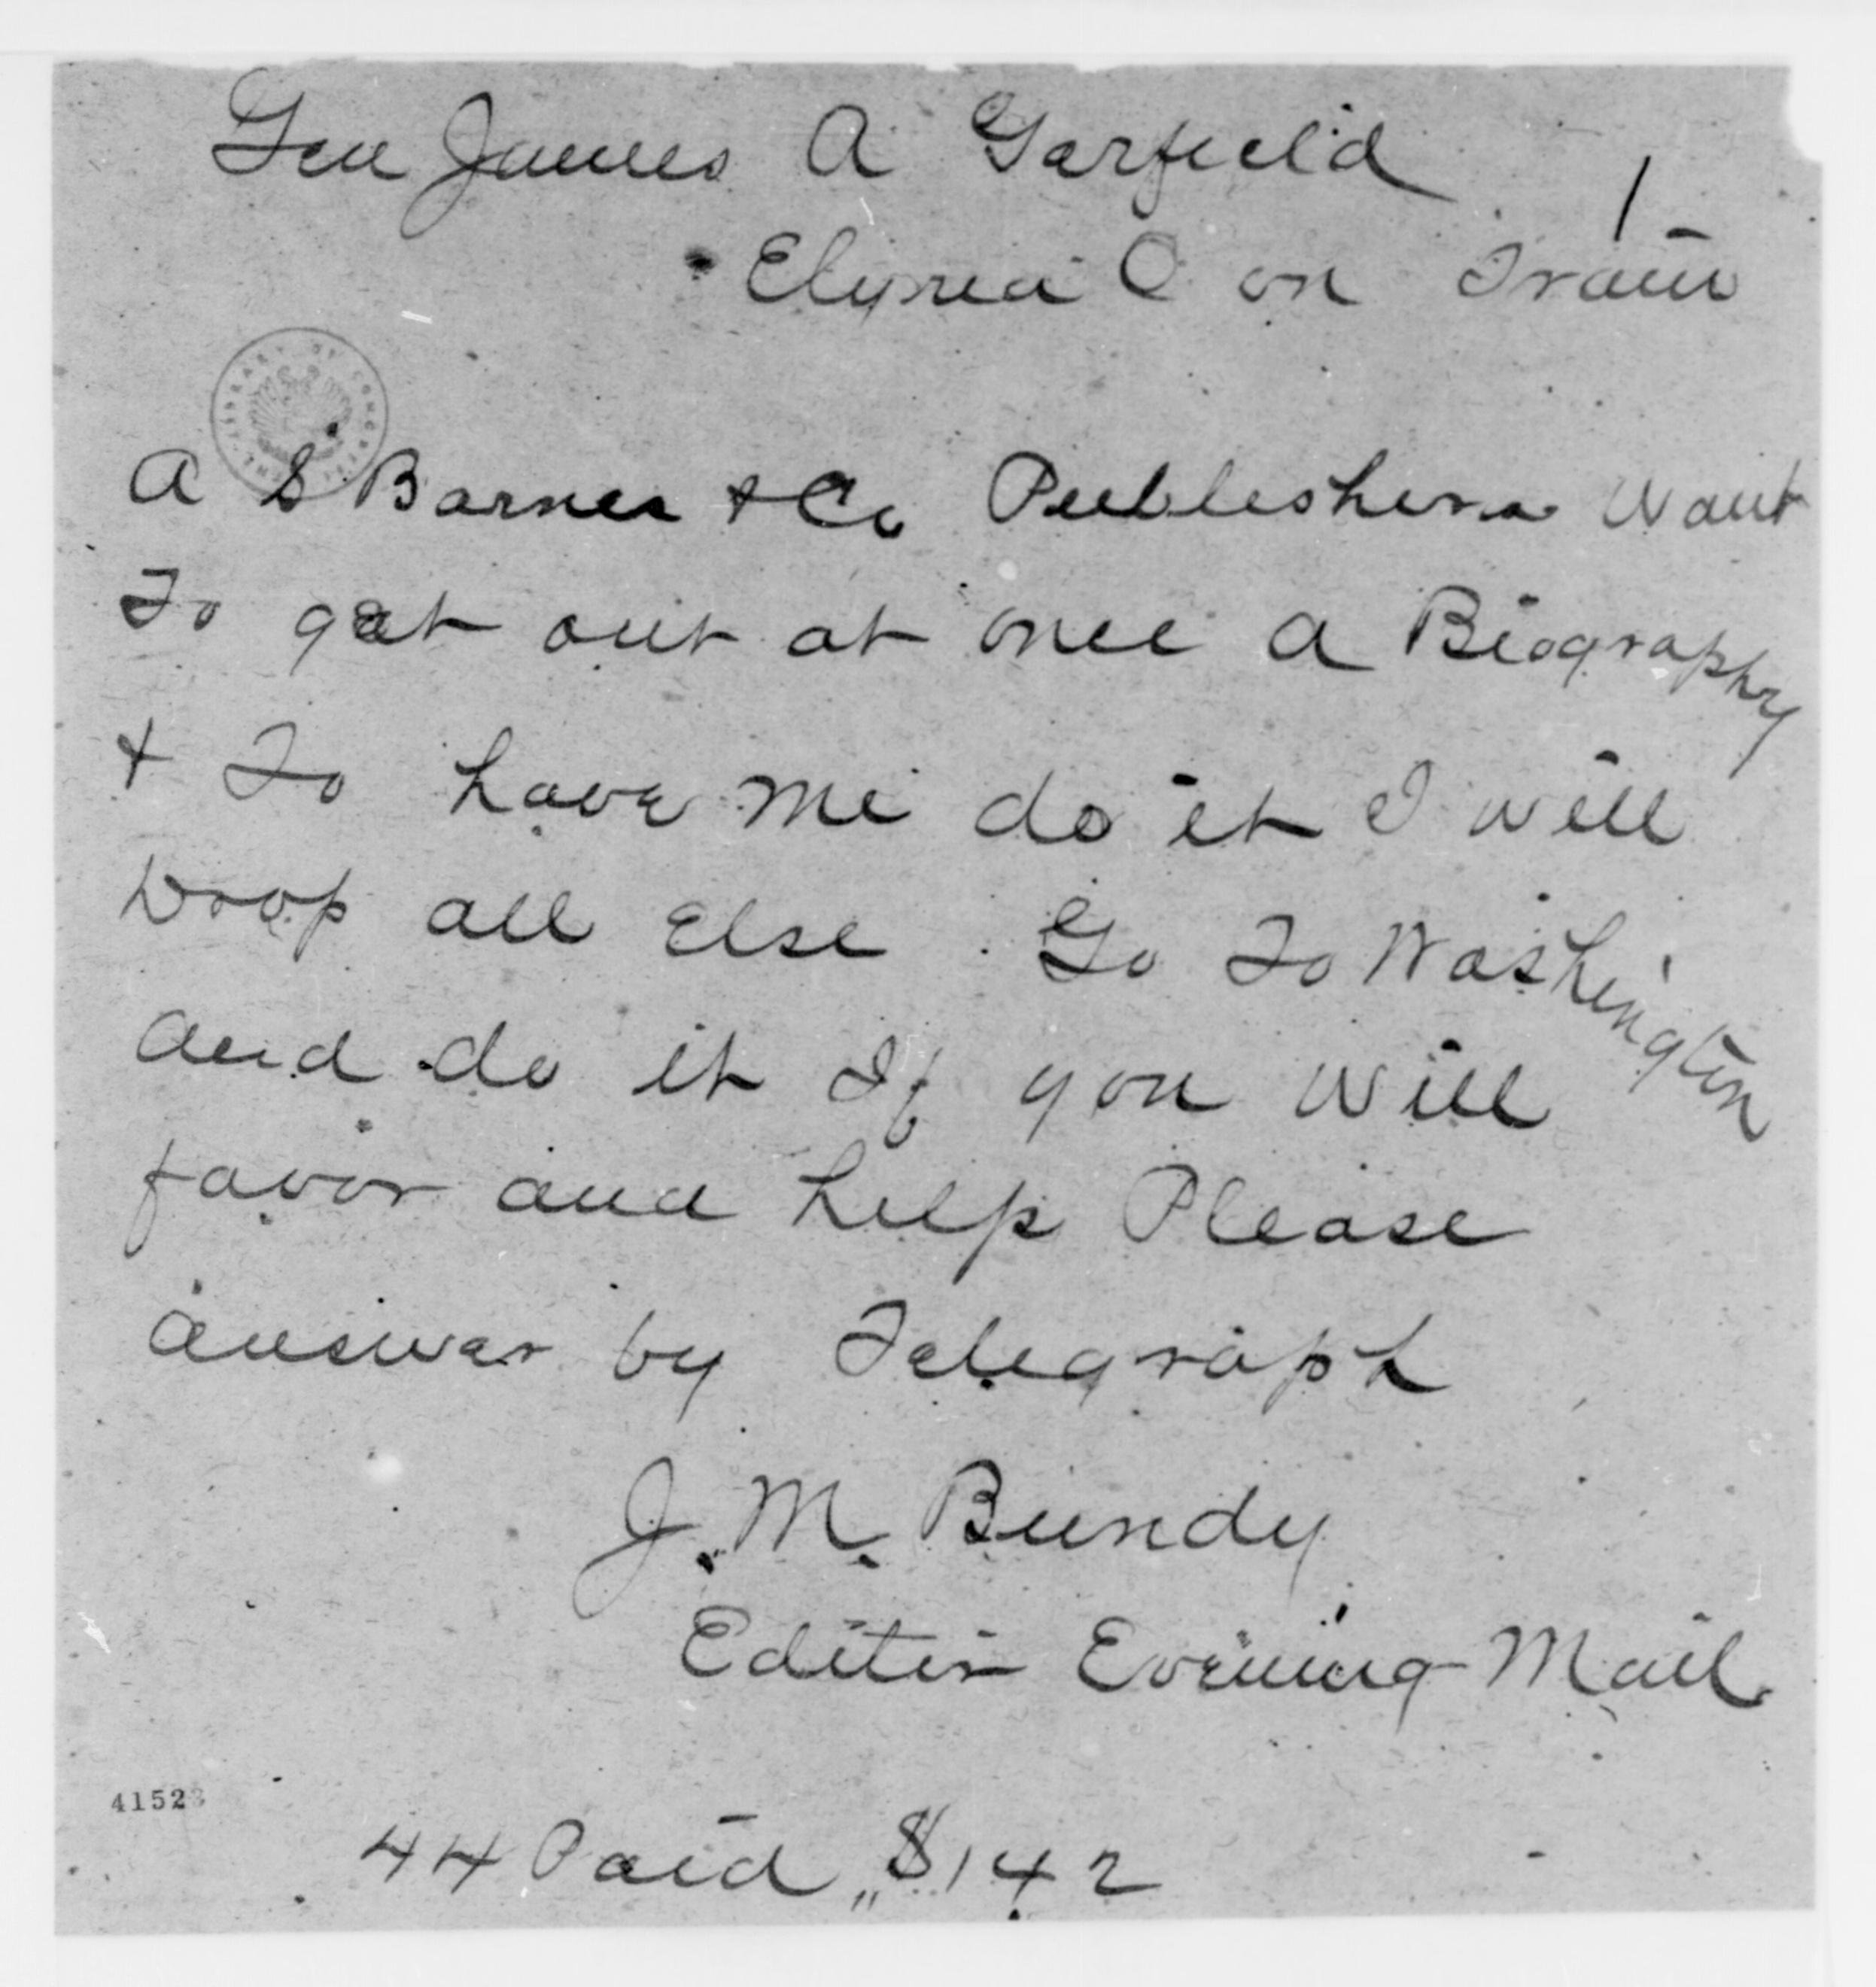 Gen James A Garfield
1
Elyria O on Train
A S Barnes + Co Publishers Want
To get out at once a Biography
+ To have me do it I will
Drop all Else Go To Washington
and do it If you will
favor and help Please
answer by Telegraph
J. M. Bundy
Editor Evening Mail
41523
44 Paid " $142